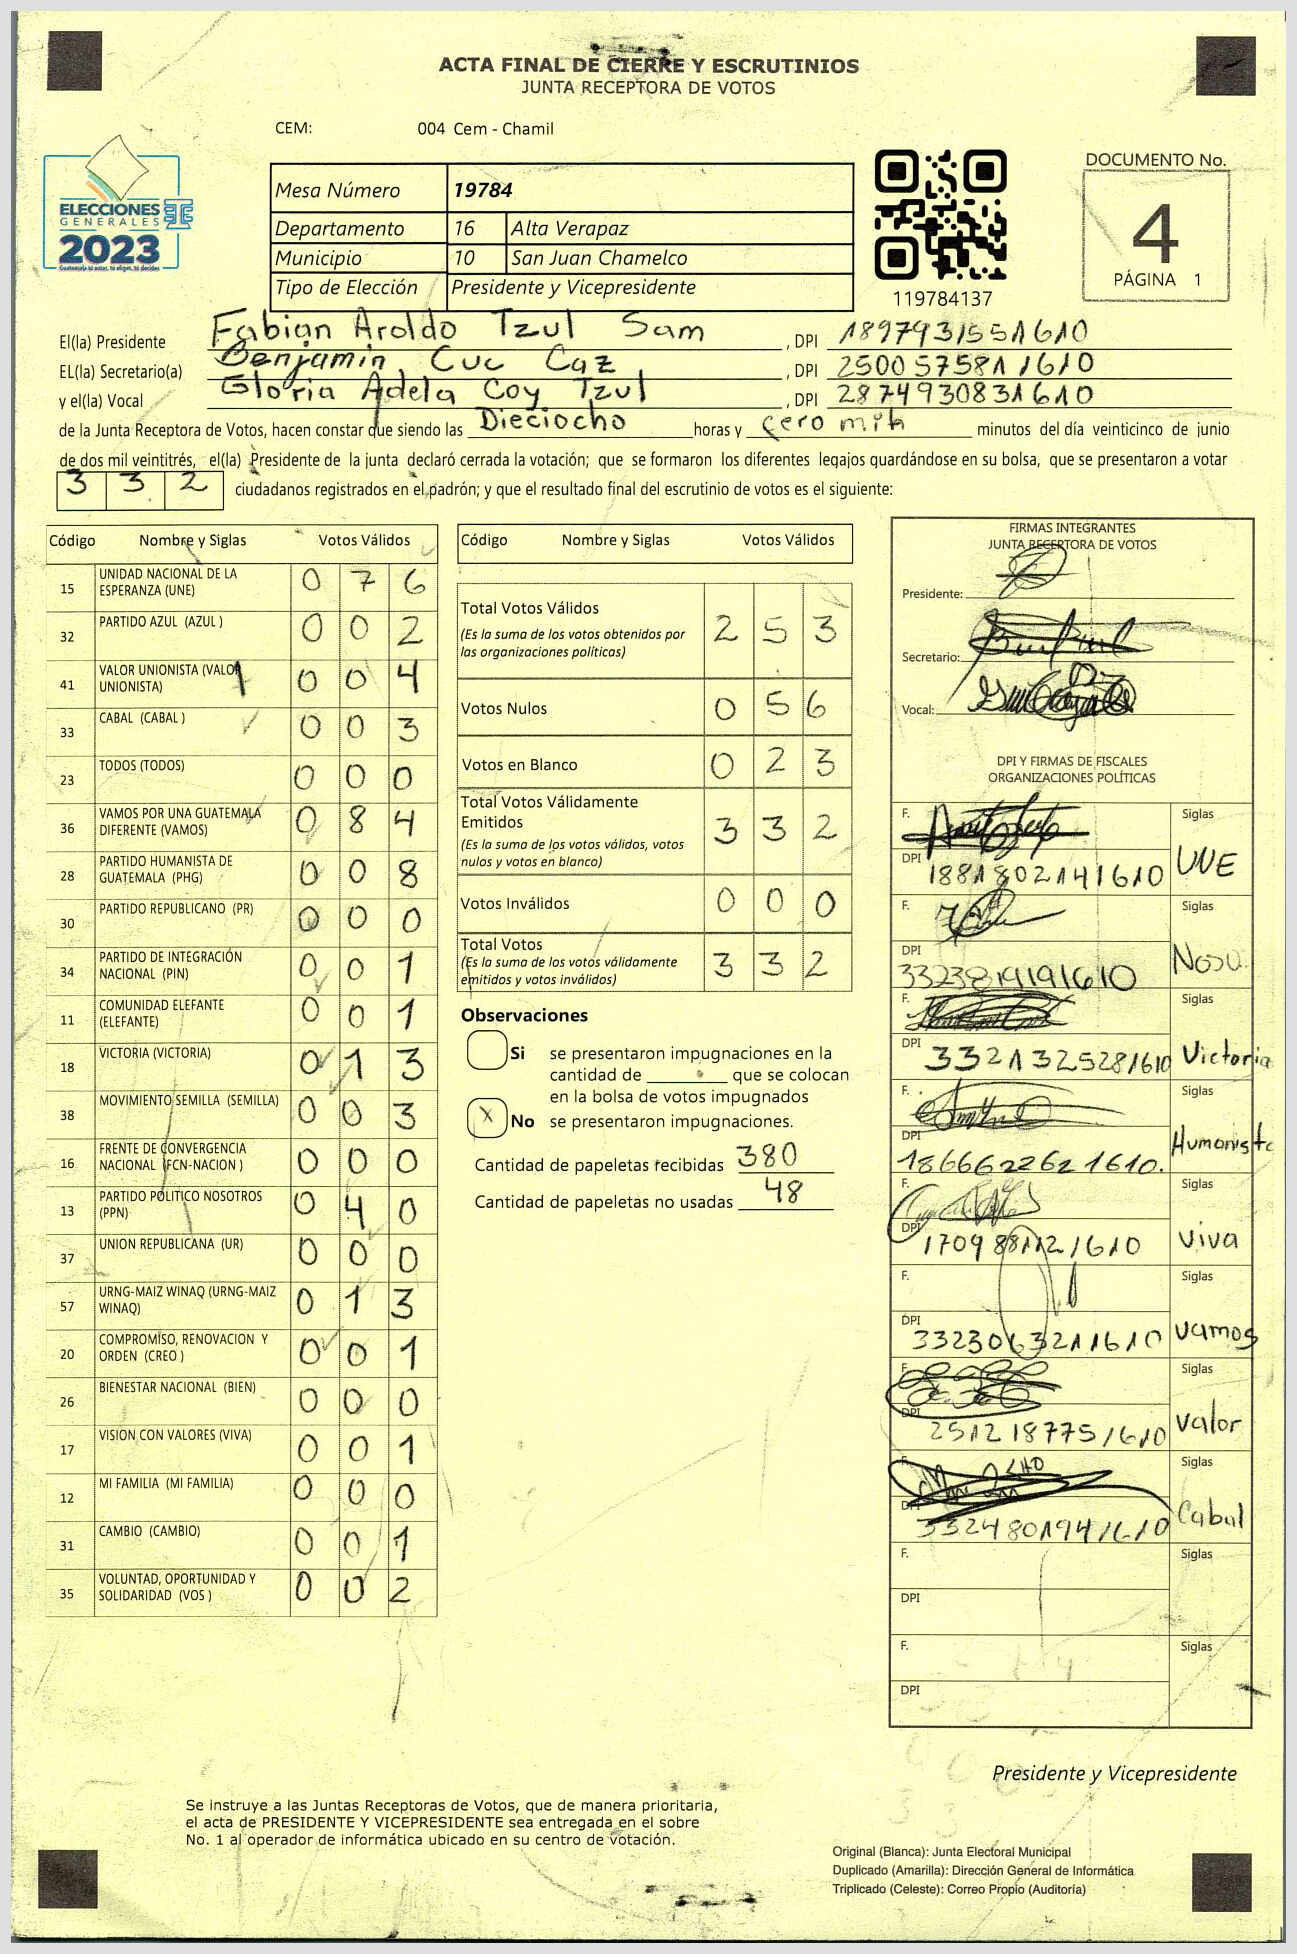 ACTA FINAL DE CIERRE Y ESCRUTINIOS
JUNTA RECEPTORA DE VOTOS
CEM: 004 Cem - Chamil
ELECCIONES
GENERALES
2023
Guatemala tú eliges, tú decides
Mesa Número 19784
Departamento 16 Alta Verapaz
Municipio 10 San Juan Chamelco
Tipo de Elección Presidente y Vicepresidente
119784137
DOCUMENTO No.
4
PÁGINA 1
El(la) Presidente Fabian Aroldo Tzul Sam , DPI 1897931551610
EL(la) Secretario(a) Benjamin Cuc Caz , DPI 2500575811610
y el(la) Vocal Gloria Adela Coy Tzul , DPI 2874930831610
de la Junta Receptora de Votos, hacen constar que siendo las Dieciocho horas y cero minutos del día veinticinco de junio
de dos mil veintitrés, el(la) Presidente de la junta declaró cerrada la votación; que se formaron los diferentes legajos guardándose en su bolsa, que se presentaron a votar
3 3 2 ciudadanos registrados en el padrón; y que el resultado final del escrutinio de votos es el siguiente:
Código Nombre y Siglas Votos Válidos
15 UNIDAD NACIONAL DE LA ESPERANZA (UNE) 0 7 6
32 PARTIDO AZUL (AZUL ) 0 0 2
41 VALOR UNIONISTA (VALOR UNIONISTA) 0 0 4
33 CABAL (CABAL ) 0 0 3
23 TODOS (TODOS) 0 0 0
36 VAMOS POR UNA GUATEMALA DIFERENTE (VAMOS) 0 8 4
28 PARTIDO HUMANISTA DE GUATEMALA (PHG) 0 0 8
30 PARTIDO REPUBLICANO (PR) 0 0 0
34 PARTIDO DE INTEGRACIÓN NACIONAL (PIN) 0 0 1
11 COMUNIDAD ELEFANTE (ELEFANTE) 0 0 1
18 VICTORIA (VICTORIA) 0 1 3
38 MOVIMIENTO SEMILLA (SEMILLA) 0 0 3
16 FRENTE DE CONVERGENCIA NACIONAL (FCN-NACION ) 0 0 0
13 PARTIDO POLITICO NOSOTROS (PPN) 0 4 0
37 UNION REPUBLICANA (UR) 0 0 0
57 URNG-MAIZ WINAQ (URNG-MAIZ WINAQ) 0 1 3
20 COMPROMISO, RENOVACION Y ORDEN (CREO ) 0 0 1
26 BIENESTAR NACIONAL (BIEN) 0 0 0
17 VISION CON VALORES (VIVA) 0 0 1
12 MI FAMILIA (MI FAMILIA) 0 0 0
31 CAMBIO (CAMBIO) 0 0 1
35 VOLUNTAD, OPORTUNIDAD Y SOLIDARIDAD (VOS ) 0 0 2
Código Nombre y Siglas Votos Válidos
Total Votos Válidos 2 5 3
(Es la suma de los votos obtenidos por
las organizaciones politicas)
Votos Nulos 0 5 6
Votos en Blanco 0 2 3
Total Votos Válidamente
Emitidos 3 3 2
(Es la suma de los votos válidos, votos
nulos y votos en blanco)
Votos Inválidos 0 0 0
Total Votos 3 3 2
(Es la suma de los votos válidamente
emitidos y votos inválidos)
Observaciones
Si se presentaron impugnaciones en la
cantidad de ____ que se colocan
en la bolsa de votos impugnados
X No se presentaron impugnaciones.
Cantidad de papeletas recibidas 380
Cantidad de papeletas no usadas 48
FIRMAS INTEGRANTES
JUNTA RECEPTORA DE VOTOS
Presidente:
Secretario:
Vocal:
DPI Y FIRMAS DE FISCALES
ORGANIZACIONES POLÍTICAS
F. Siglas
DPI 1881802141610 UNE
F. Siglas
DPI
F. Siglas
DPI 3321325281610 Victoria
F. Siglas
DPI 1866622621610. Humanista
F. Siglas
DPI 1709881121610 viva
F. Siglas
DPI 3323063211610 vamos
F. Siglas
DPI 2512187751610 valor
F. Siglas
DPI 3324801941610 Cabal
F. Siglas
DPI
F. Siglas
DPI
Presidente y Vicepresidente
Se instruye a las Juntas Receptoras de Votos, que de manera prioritaria,
el acta de PRESIDENTE Y VICEPRESIDENTE sea entregada en el sobre
No. 1 al operador de informática ubicado en su centro de votación.
Original (Blanca): Junta Electoral Municipal
Duplicado (Amarilla): Dirección General de Informática
Triplicado (Celeste): Correo Propio (Auditoría)